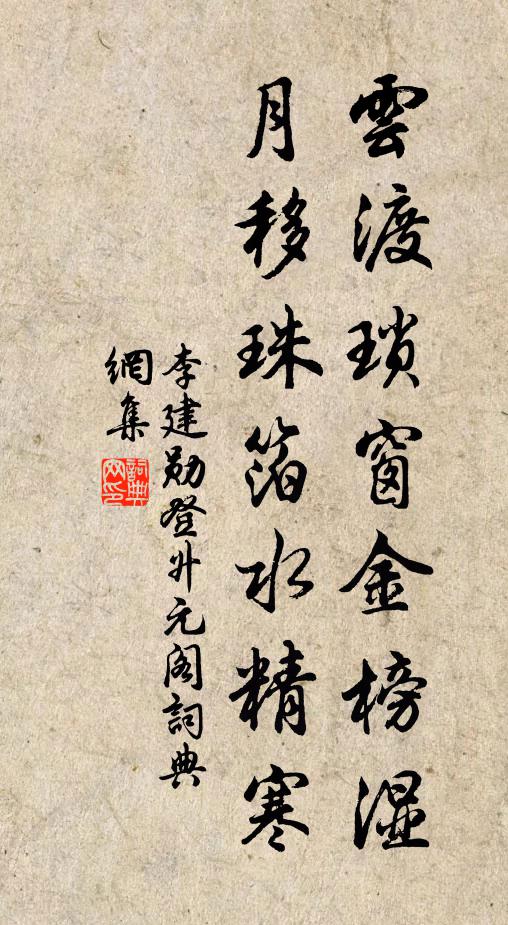 雲渡瑣窗金榜濕
月移珠箔水精寒
李建勛登升元閣詞典
網集
詞典網印